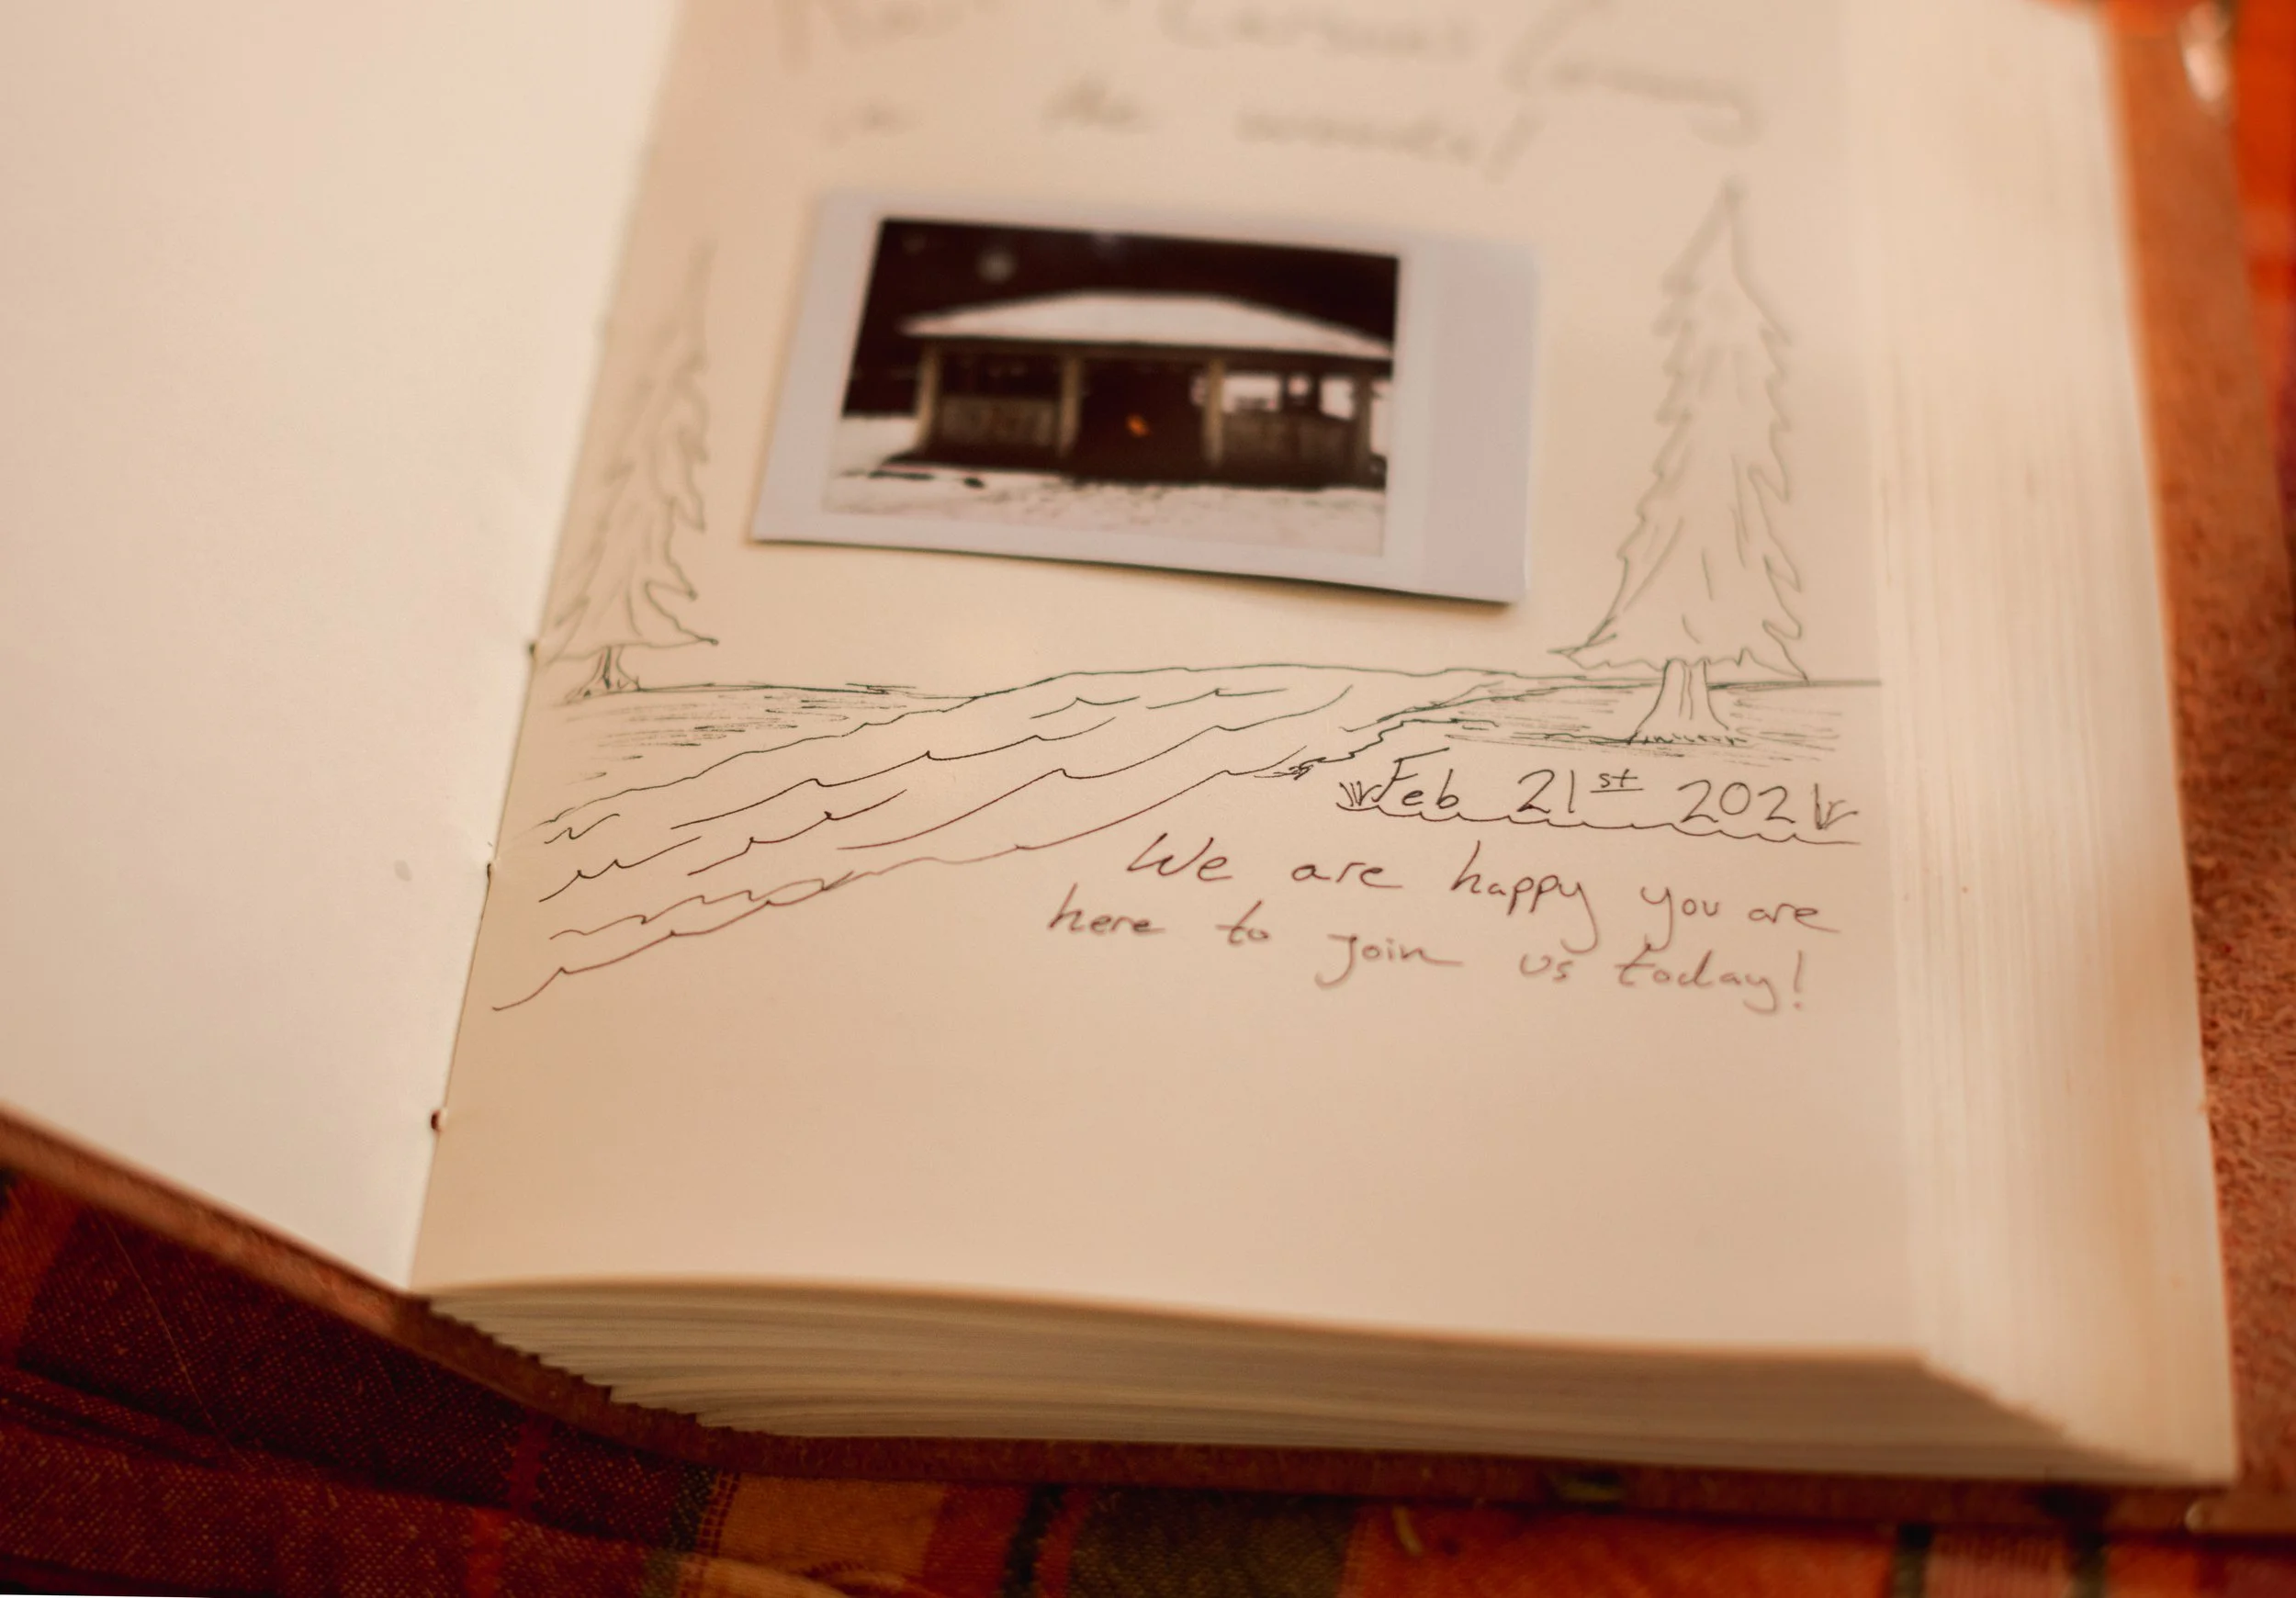 in the woods!
Feb 21st 2021
We are happy you are
here to join us today!